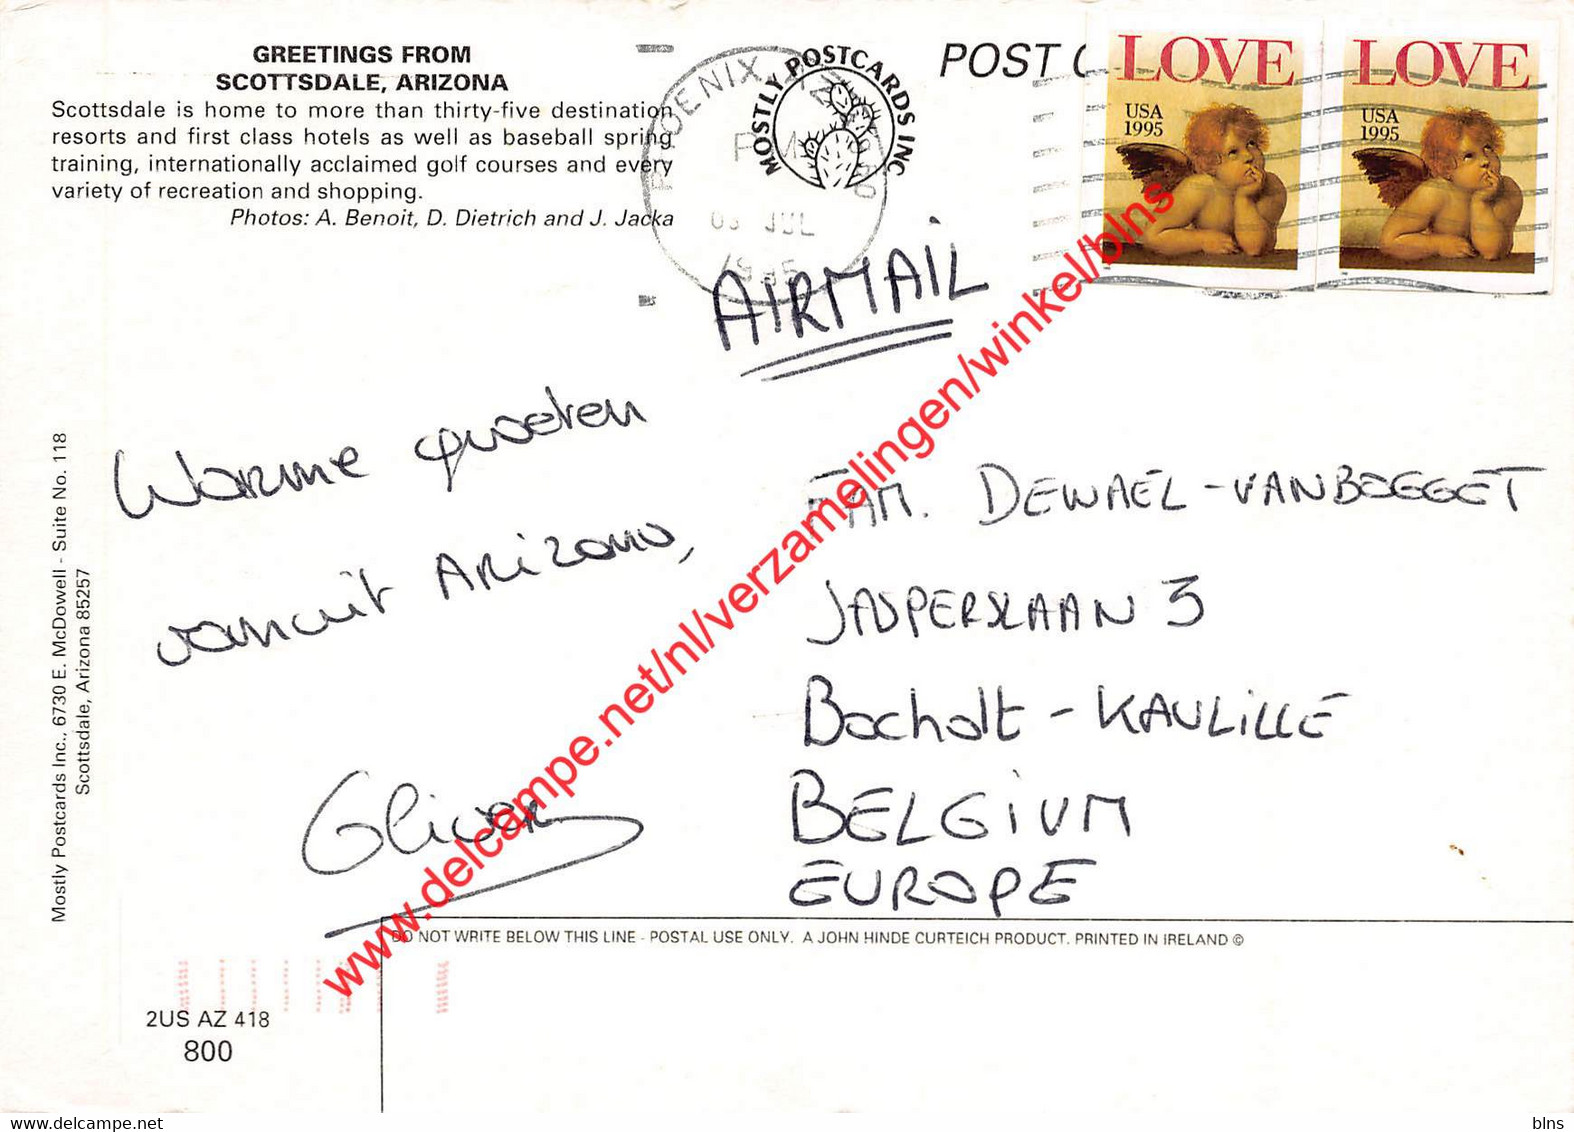 GREETINGS FROM
SCOTTSDALE, ARIZONA
Scottsdale is home to more than thirty-five destination
resorts and first class hotels as well as baseball spring
training, internationally acclaimed golf courses and every
variety of recreation and shopping.
Photos: A. Benoit, D. Dietrich and J. Jacka
PHOENIX, AZ
PM
JUL
1995
MOSTLY POSTCARDS INC
POST C
LOVE
USA
1995
LOVE
USA
1995
AIRMAIL
Warme groeten
vanuit Arizona,
Olivier
FAM. DEWAEL-VANBOGGET
JASPERSLAAN 3
Bocholt - KAULILLE
BELGIUM
EUROPE
Mostly Postcards Inc., 6730 E. McDowell - Suite No. 118
Scottsdale, Arizona 85257
DO NOT WRITE BELOW THIS LINE - POSTAL USE ONLY. A JOHN HINDE CURTEICH PRODUCT. PRINTED IN IRELAND ©
2US AZ 418
800
www.delcampe.net/nl/verzamelingen/winkel/blns
delcampe.net
blns